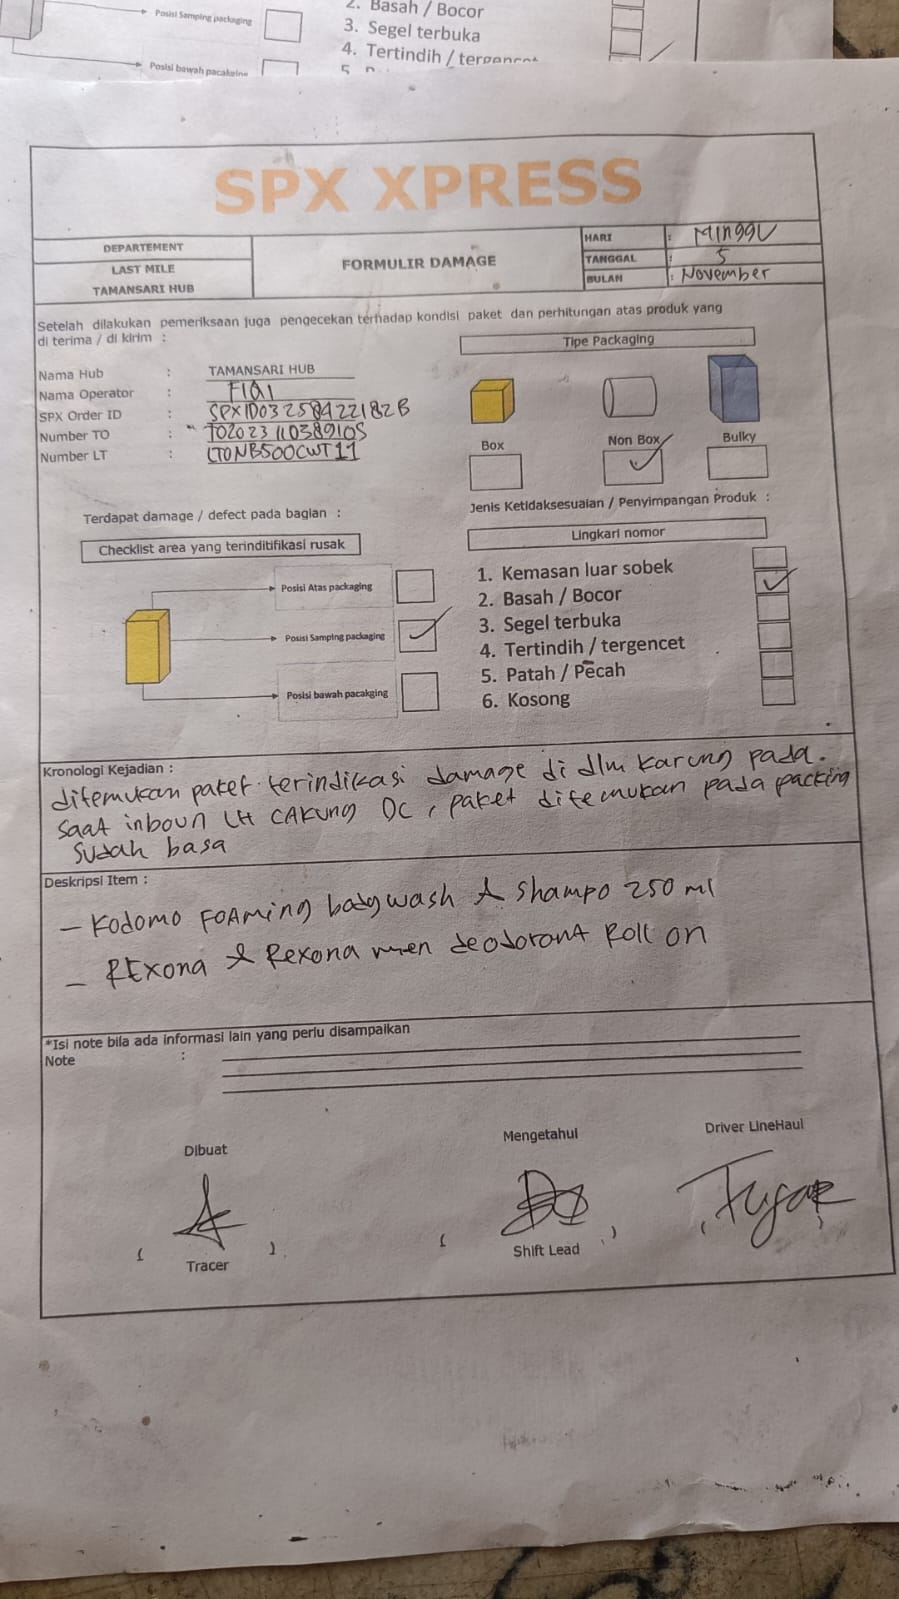 Posisi Samping packaging
2. Basah / Bocor
3. Segel terbuka
4. Tertindih / tergencet
Posisi bawah pacakging
5.
SPX XPRESS
DEPARTEMENT
LAST MILE
TAMANSARI HUB
FORMULIR DAMAGE
HARI : Minggu
TANGGAL : 5
BULAN : November
Setelah dilakukan pemeriksaan juga pengecekan terhadap kondisi paket dan perhitungan atas produk yang
di terima / di kirim :
Tipe Packaging
Nama Hub : TAMANSARI HUB
Nama Operator : FIQI
SPX Order ID : SPXID032589422182B
Number TO : TO20231103891OS
Number LT : LTONB500CWT11
Box
Non Box
Bulky
Terdapat damage / defect pada bagian :
Jenis Ketidaksesuaian / Penyimpangan Produk :
Checklist area yang terinditifikasi rusak
Lingkari nomor
Posisi Atas packaging
Posisi Samping packaging
Posisi bawah pacakging
1. Kemasan luar sobek
2. Basah / Bocor
3. Segel terbuka
4. Tertindih / tergencet
5. Patah / Pecah
6. Kosong
Kronologi Kejadian :
ditemukan paket terindikasi damage di dlm karung pada
saat inboun LH CAKUNG DC, paket ditemukan pada packing
sudah basa
Deskripsi Item :
- Kodomo FOAMING body wash & shampo 250 ml
- REXona & Rexona men deodorant Roll on
*Isi note bila ada informasi lain yang perlu disampaikan
Note :
Dibuat
Mengetahui
Driver LineHaul
Tracer
Shift Lead